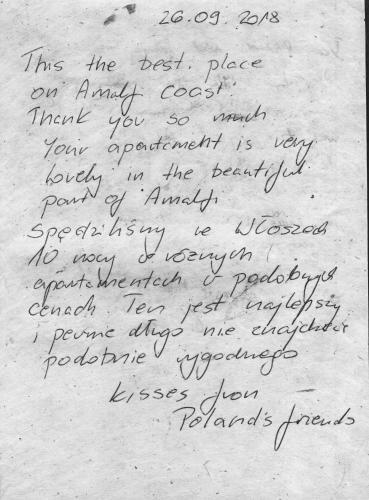 26.09.2018
This the best place
on Amalfi coast.
Thank you so much
Your apartament is very
Lovely in the beautiful
part of Amalfi
Spędziliśmy we Włoszech
10 nocy w różnych
apartamentach w podobnych
cenach. Ten jest najlepszy
i pewnie długo nie znajdziecie
podobnie wygodnego
kisses from
Poland's friends